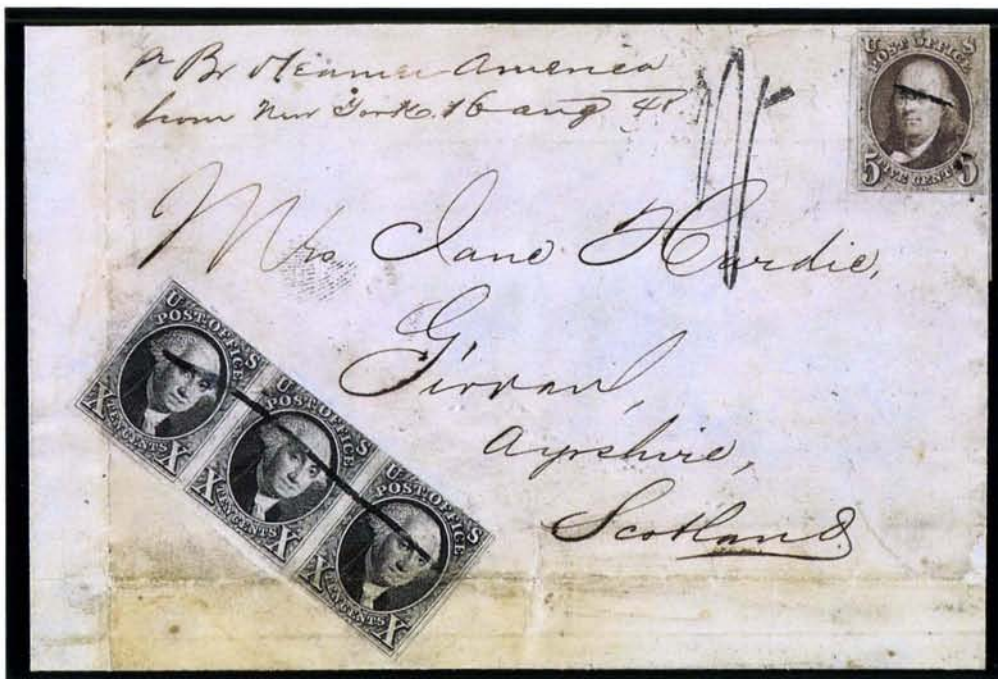 pr Br Steamer America
from New York 16 aug 48
U POST OFFICE S
5 FIVE CENTS 5
Mrs Jane Hardie,
Girvan,
Ayrshire,
Scotland
U POST OFFICE S
X TEN CENTS X
U POST OFFICE S
X TEN CENTS X
U POST OFFICE S
X TEN CENTS X